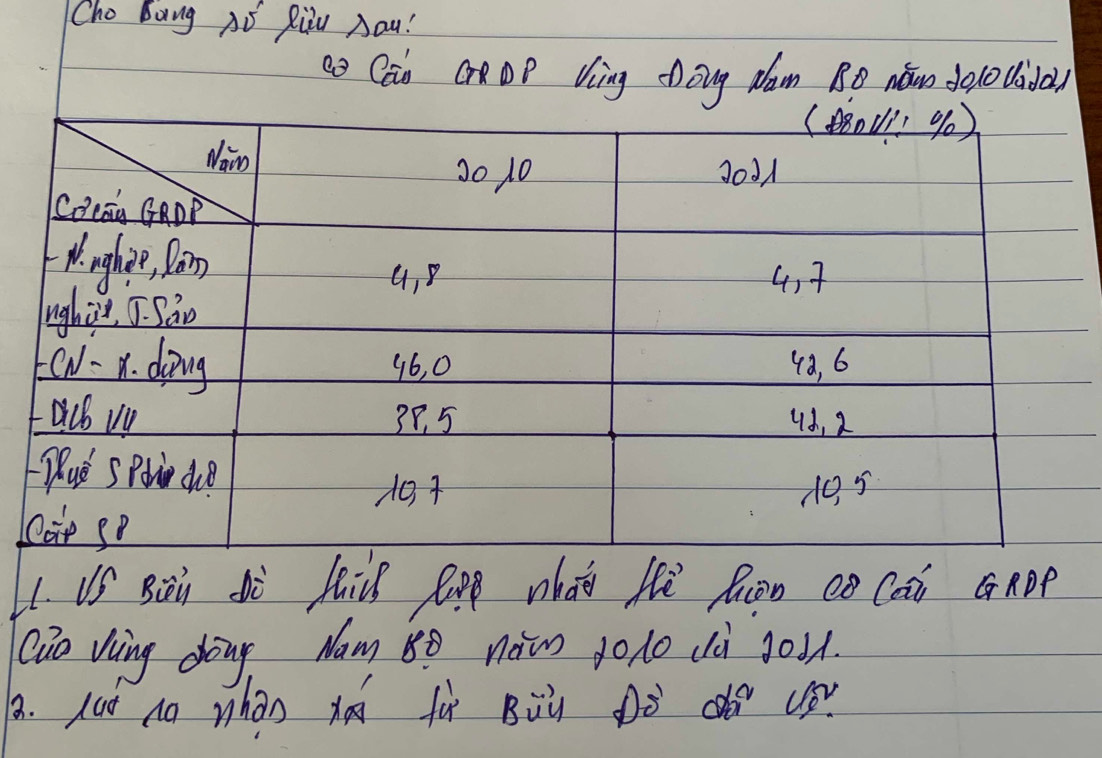 Cho Bảng số liệu sau:
Cơ Cấu GRDP Vùng Đông Nam Bộ năm 2010 và 2021
(Đơn Vị: %)
Năm 2010 2021
Cơ cấu GRDP
- N. nghiệp, lâm 4,8 4,7
nghiệp, T. Sản
- CN - X. dựng 46,0 42,6
- Dịch vụ 38,5 42,2
- Thuế SP trừ trợ 10,7 10,5
Cấp SP
1. Vẽ Biểu đồ thích hợp nhất thể hiện cơ Cấu GRDP
Của vùng đông Nam Bộ năm 2010 và 2021.
2. rút ra nhận xét từ Biểu Đồ đã vẽ.